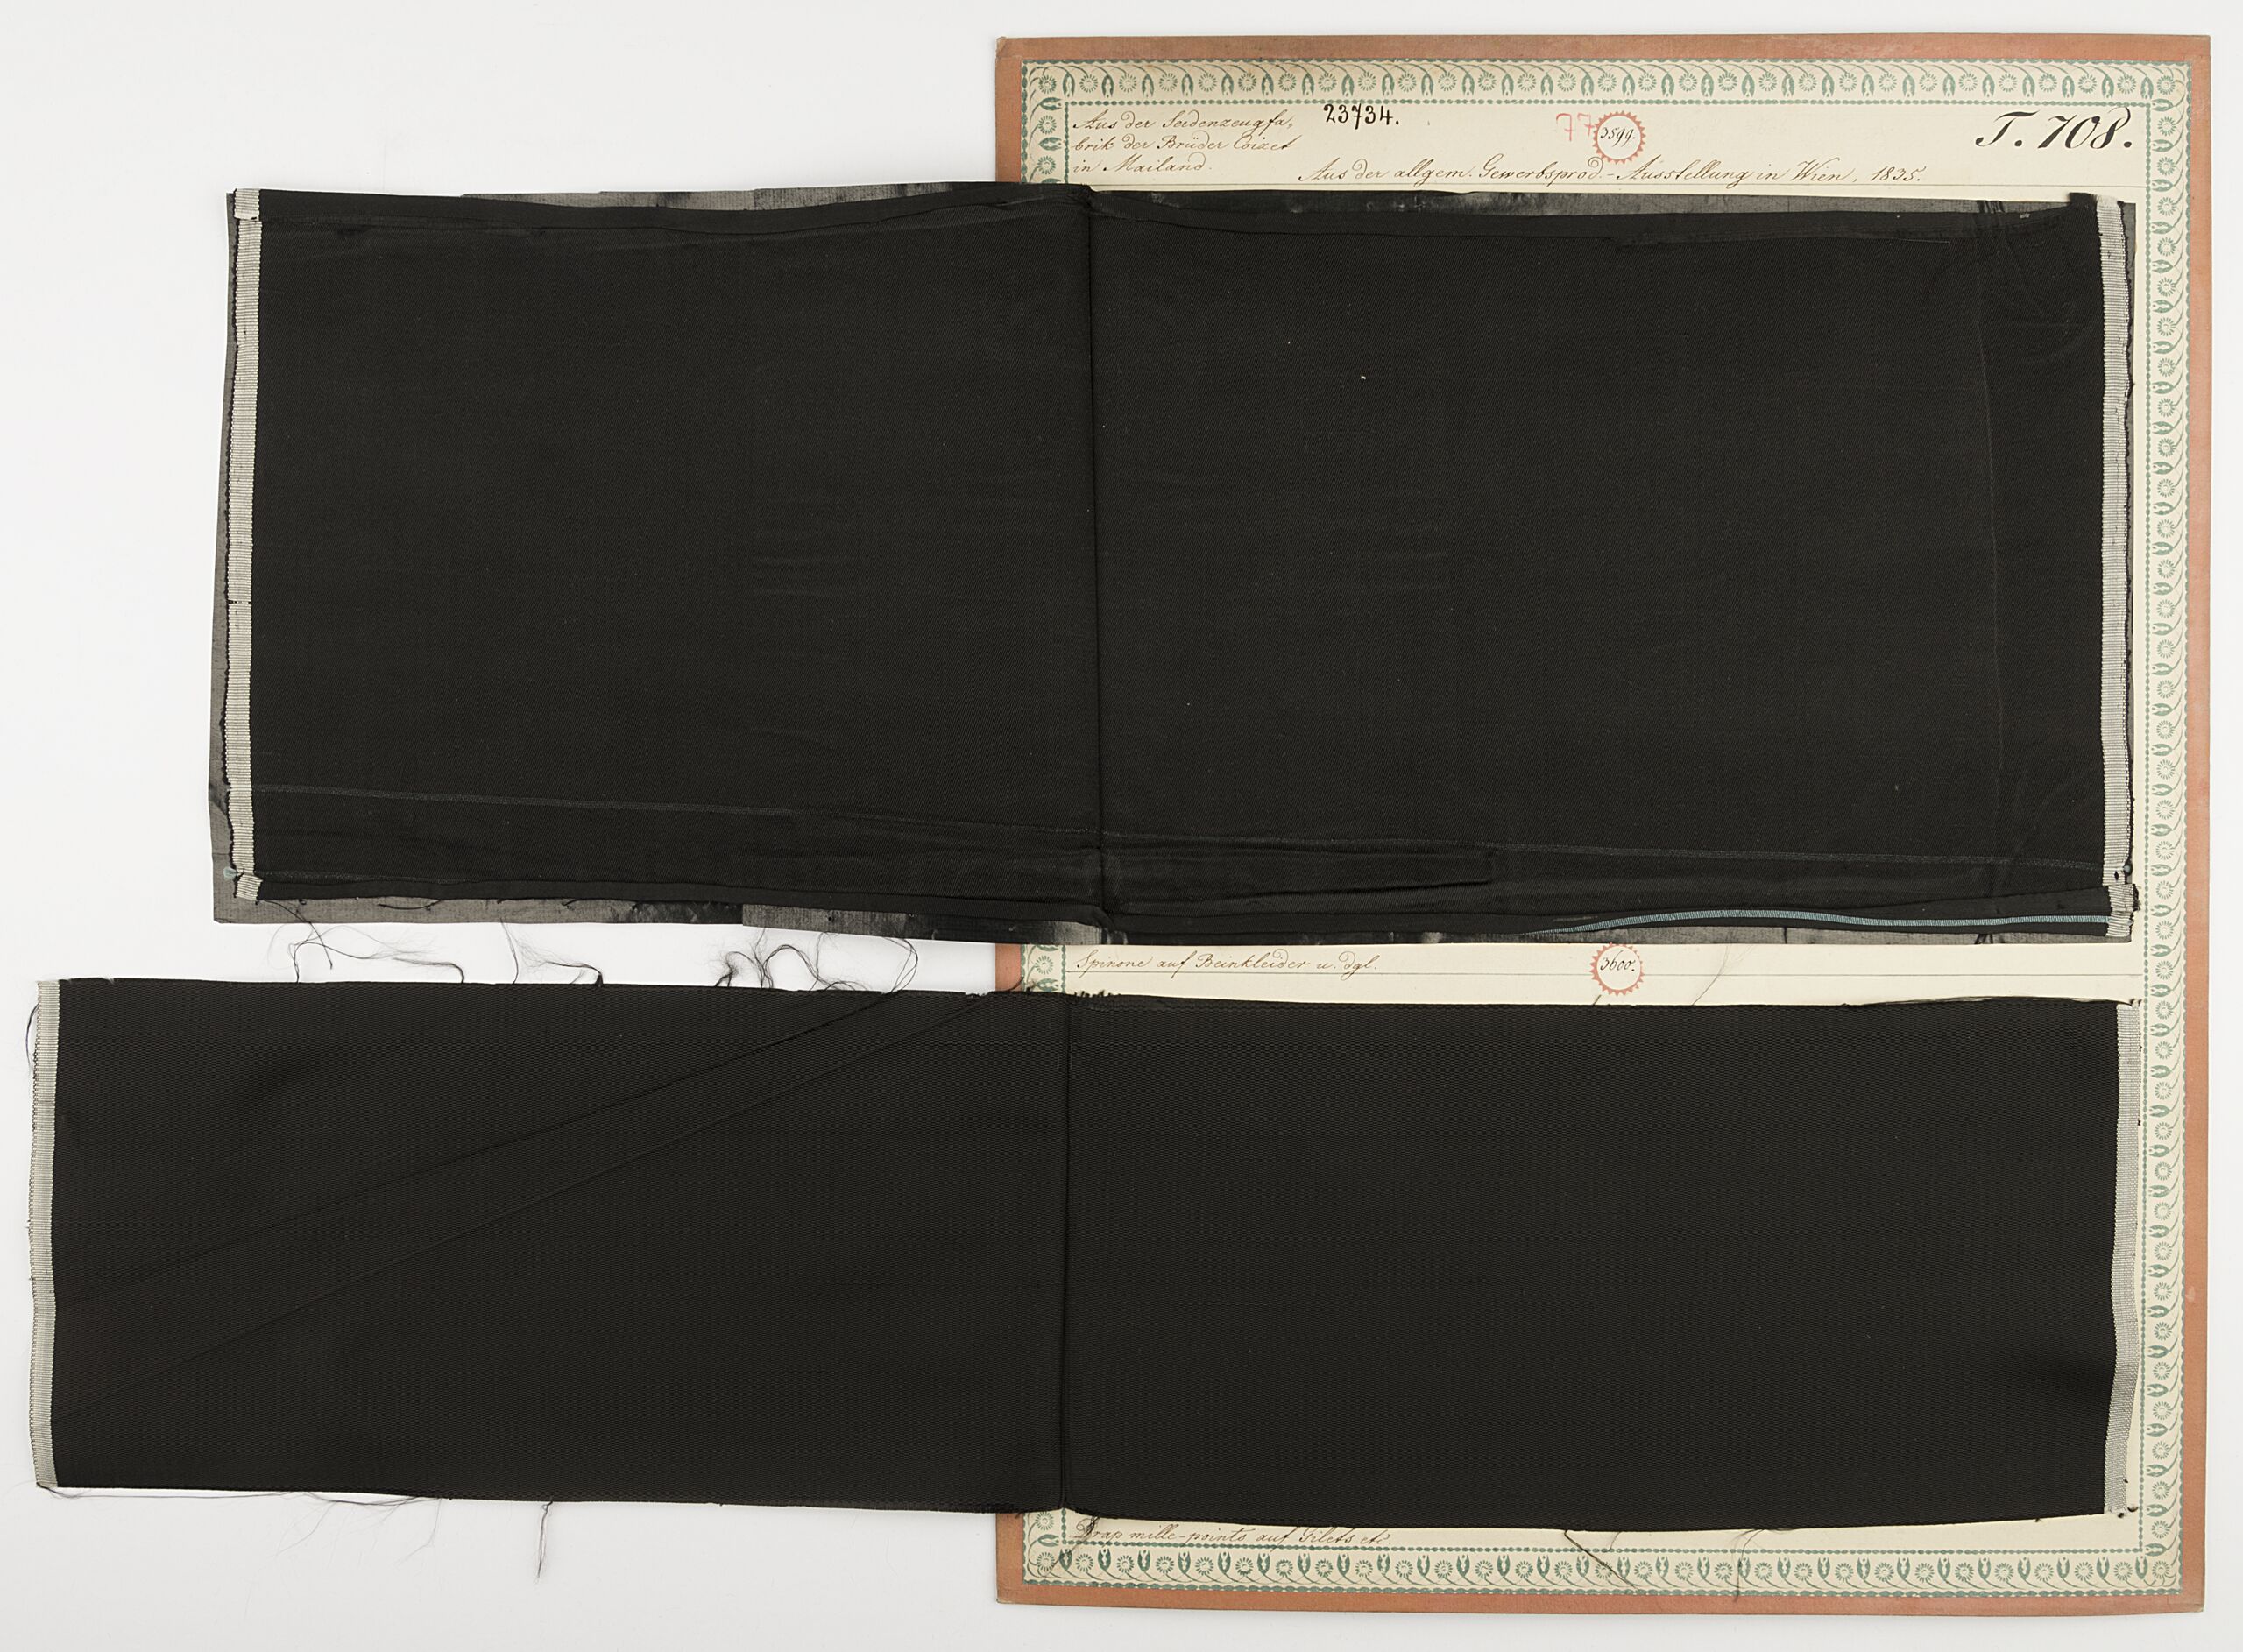 Aus der Seidenzeugfa,
brik der Brüder Coizet
in Mailand.
23734.
77
3599.
T. 708.
Aus der allgem. Gewerbsprod.-Ausstellung in Wien, 1835.
Spinone auf Beinkleider u. dgl.
3600.
Drap mille-points auf Gilets etc.